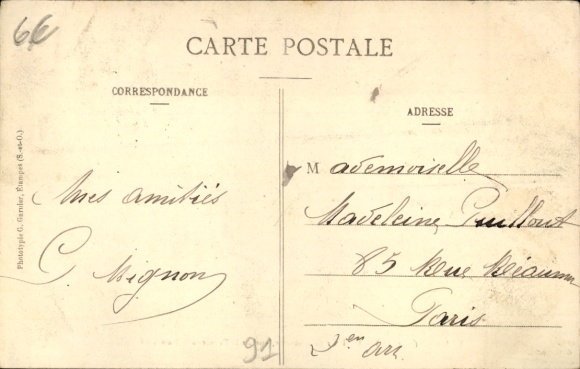 6€
CARTE POSTALE
CORRESPONDANCE
ADRESSE
Phototypie G. Garnier, Étampes (S.-et-O.)
Mes amitiés
C Mignon
Mademoiselle
Madeleine
85 Rue Réaumur
Paris
en arr
91